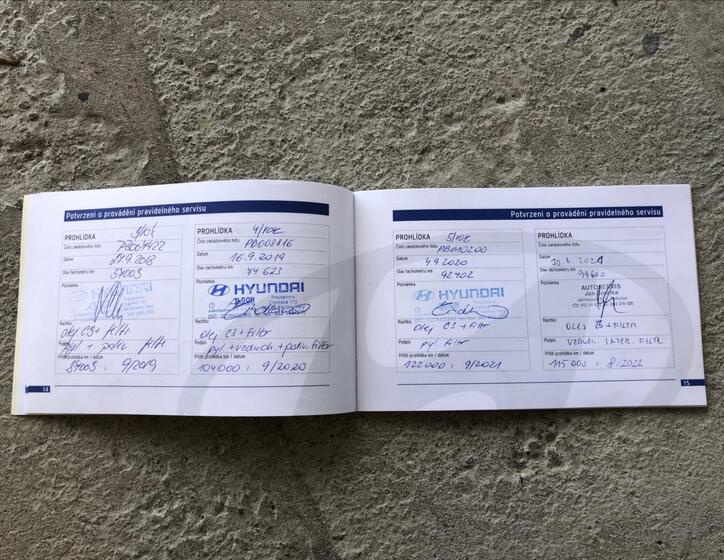 Potvrzení o provádění pravidelného servisu
PROHLÍDKA 3/rok
Číslo zakázkového listu
Datum 27.9.2018
Stav tachometru km
57003
Poznámka
Razítko
Olej C3 + filtr
Podpis
pyl + poliv. filtr
Příští prohlídka km / datum
87003, 9/2019
14
PROHLÍDKA 4/rok
Číslo zakázkového listu
PD008816
Datum
16.9.2019
Stav tachometru km
74623
Poznámka
HYUNDAI
Razítko
Olej C3 + Filtr
Podpis
pyl. + vzduch. + paliv. Filtr
Příští prohlídka km / datum
104000, 9/2020
Potvrzení o provádění pravidelného servisu
PROHLÍDKA 5/rok
Číslo zakázkového listu
PB010200
Datum
4.9.2020
Stav tachometru km
92402
Poznámka
HYUNDAI
Razítko
Olej C3 + Filtr
Podpis
pyl Filtr
Příští prohlídka km / datum
122000, 9/2021
PROHLÍDKA
Číslo zakázkového listu
Datum
30.7.2021
Stav tachometru km
99600
Poznámka
AUTOSERVIS
Razítko
OLEJ + FILTR
Podpis
VZDUCH. INTER. FILTR
Příští prohlídka km / datum
115000, 8/2022
15